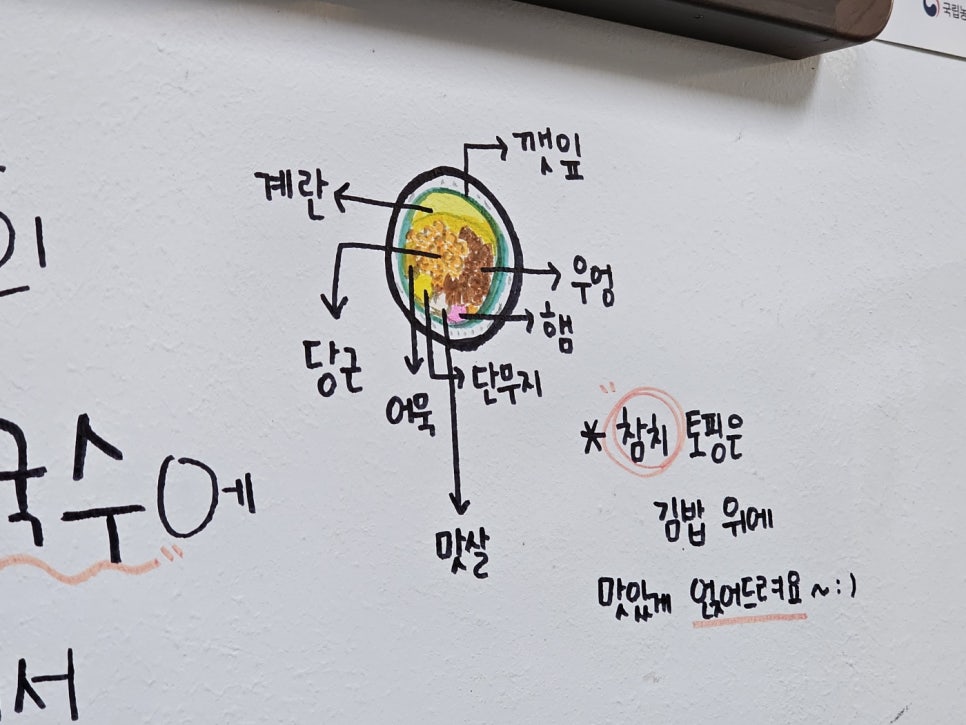 깻잎
계란
우엉
햄
당근
단무지
어묵
맛살
* "참치 토핑은
김밥 위에
맛있게 얹어드려요~:)
국수에
서